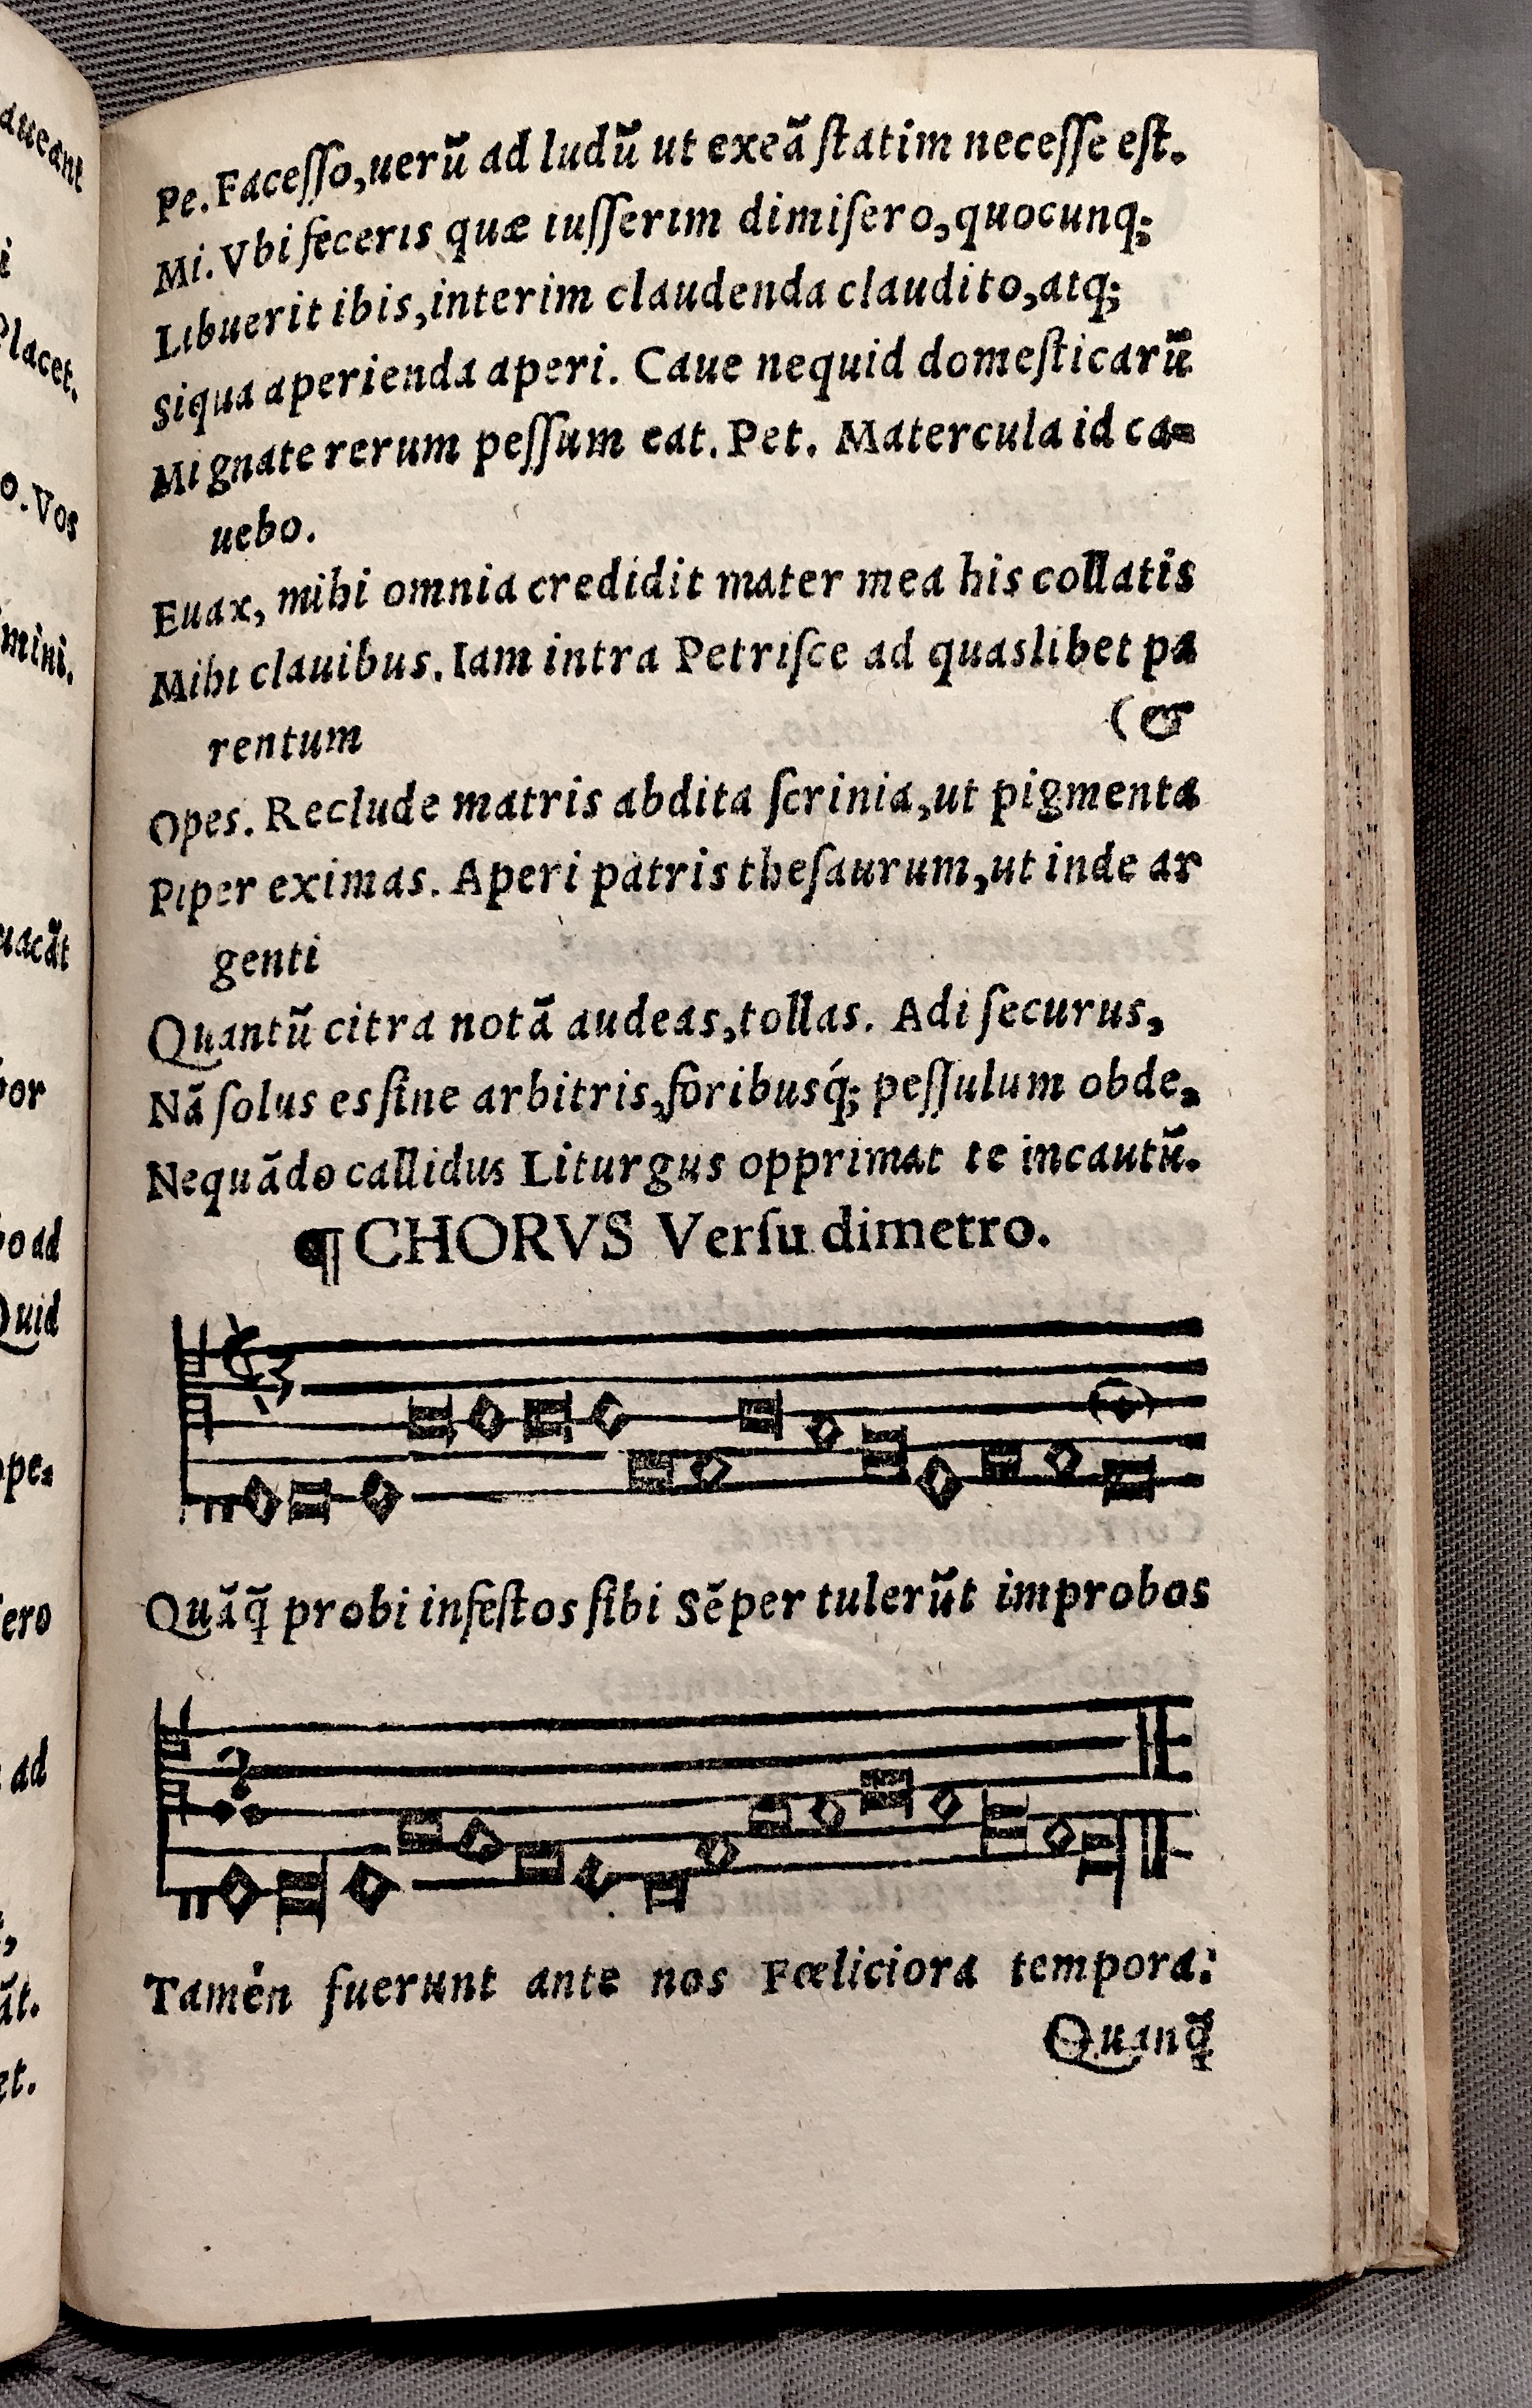 aueant
i
Placet.
o. Vos
mini.
uacãt
por
ope=
ad
Quid
ad
ãt.
et.
Pe. Faceſſo, uerũ ad ludũ ut exeã ſtatim neceſſe eſt.
Mi. Vbi feceris quæ iuſſerim dimiſero, quocunq;
Libuerit ibis, interim claudenda claudito, atq;
Siqua aperienda aperi. Caue nequid domeſticarũ
Mi gnate rerum peſſum eat. Pet. Matercula id ca=
uebo.
Euax, mihi omnia credidit mater mea his collatis
Mihi clauibus. Iam intra Petriſce ad quaslibet pa
rentum
Opes. Reclude matris abdita ſcrinia, ut pigmenta
Piper eximas. Aperi patris theſaurum, ut inde ar
genti
Quantũ citra notã audeas, tollas. Adi ſecurus,
Nã ſolus es ſine arbitris, foribusq́; peſſulum obde,
Nequãdo callidus Liturgus opprimat te incautũ.
¶ CHORVS Verſu dimetro.
Quãq̃ probi infeſtos ſibi Sẽper tulerũt improbos
Tamén fuerunt ante nos Fœliciora tempora:
Quanq̃